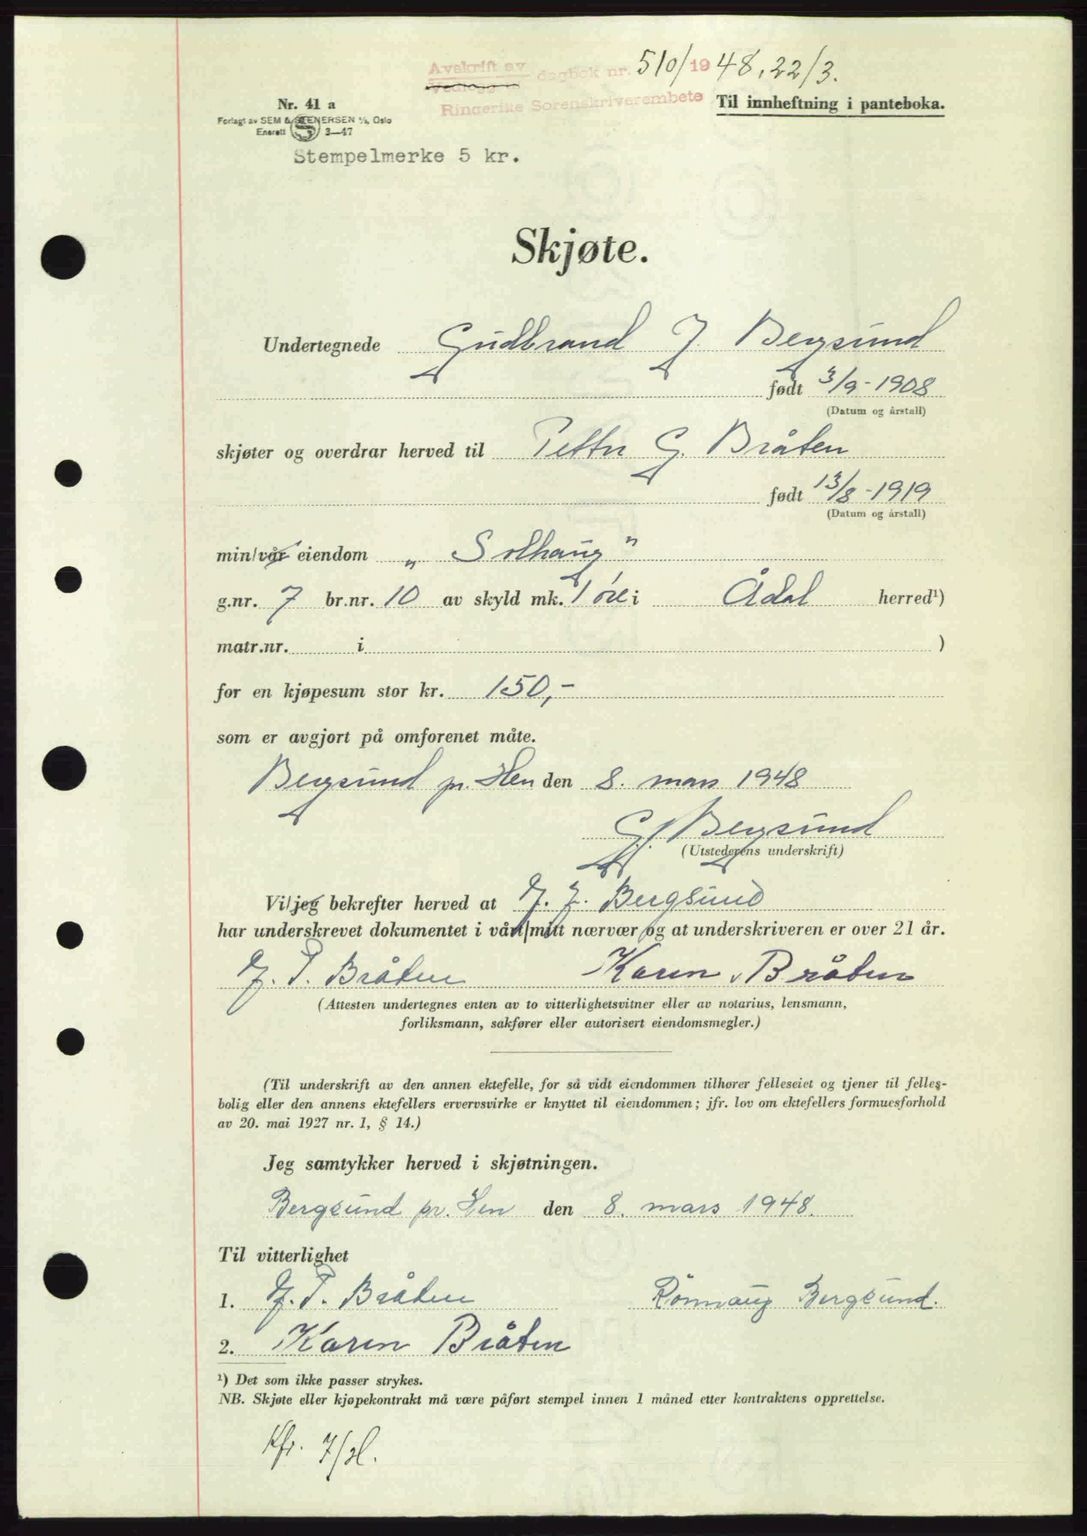 Avskrift av
Vedlegg
dagbok nr. 510/1948, 22/3.
Ringerike Sorenskriverembete
Til innheftning i panteboka.
Nr. 41 a
Forlagt av SEM & STENERSEN A/S, Oslo
Enerett 3—47
Stempelmerke 5 kr.
Skjøte.
Undertegnede Gudbrand J. Bergsund
født 3/9-1908
(Datum og årstall)
skjøter og overdrar herved til Petter G. Bråten
født 13/8-1919
(Datum og årstall)
min/vår eiendom „Solhaug"
g.nr. 7 br.nr. 10 av skyld mk. 1 øre i Ådal herred¹)
matr.nr. i )
for en kjøpesum stor kr. 150,-
som er avgjort på omforenet måte.
Bergsund pr. Hen den 8. mars 1948
G. J. Bergsund
(Utstederens underskrift)
Vi/jeg bekrefter herved at G. J. Bergsund
har underskrevet dokumentet i vårt/mitt nærvær og at underskriveren er over 21 år.
P. Bråten Karen Bråten
(Attesten undertegnes enten av to vitterlighetsvitner eller av notarius, lensmann,
forliksmann, sakfører eller autorisert eiendomsmegler.)
(Til underskrift av den annen ektefelle, for så vidt eiendommen tilhører felleseiet og tjener til felles-
bolig eller den annens ektefellers ervervsvirke er knyttet til eiendommen; jfr. lov om ektefellers formuesforhold
av 20. mai 1927 nr. 1, § 14.)
Jeg samtykker herved i skjøtningen.
Bergsund pr. Hen den 8. mars 1948.
Til vitterlighet
1. P. Bråten Rønnaug Bergsund.
2. Karen Bråten
¹) Det som ikke passer strykes.
NB. Skjøte eller kjøpekontrakt må være påført stempel innen 1 måned etter kontraktens opprettelse.
Kfr.